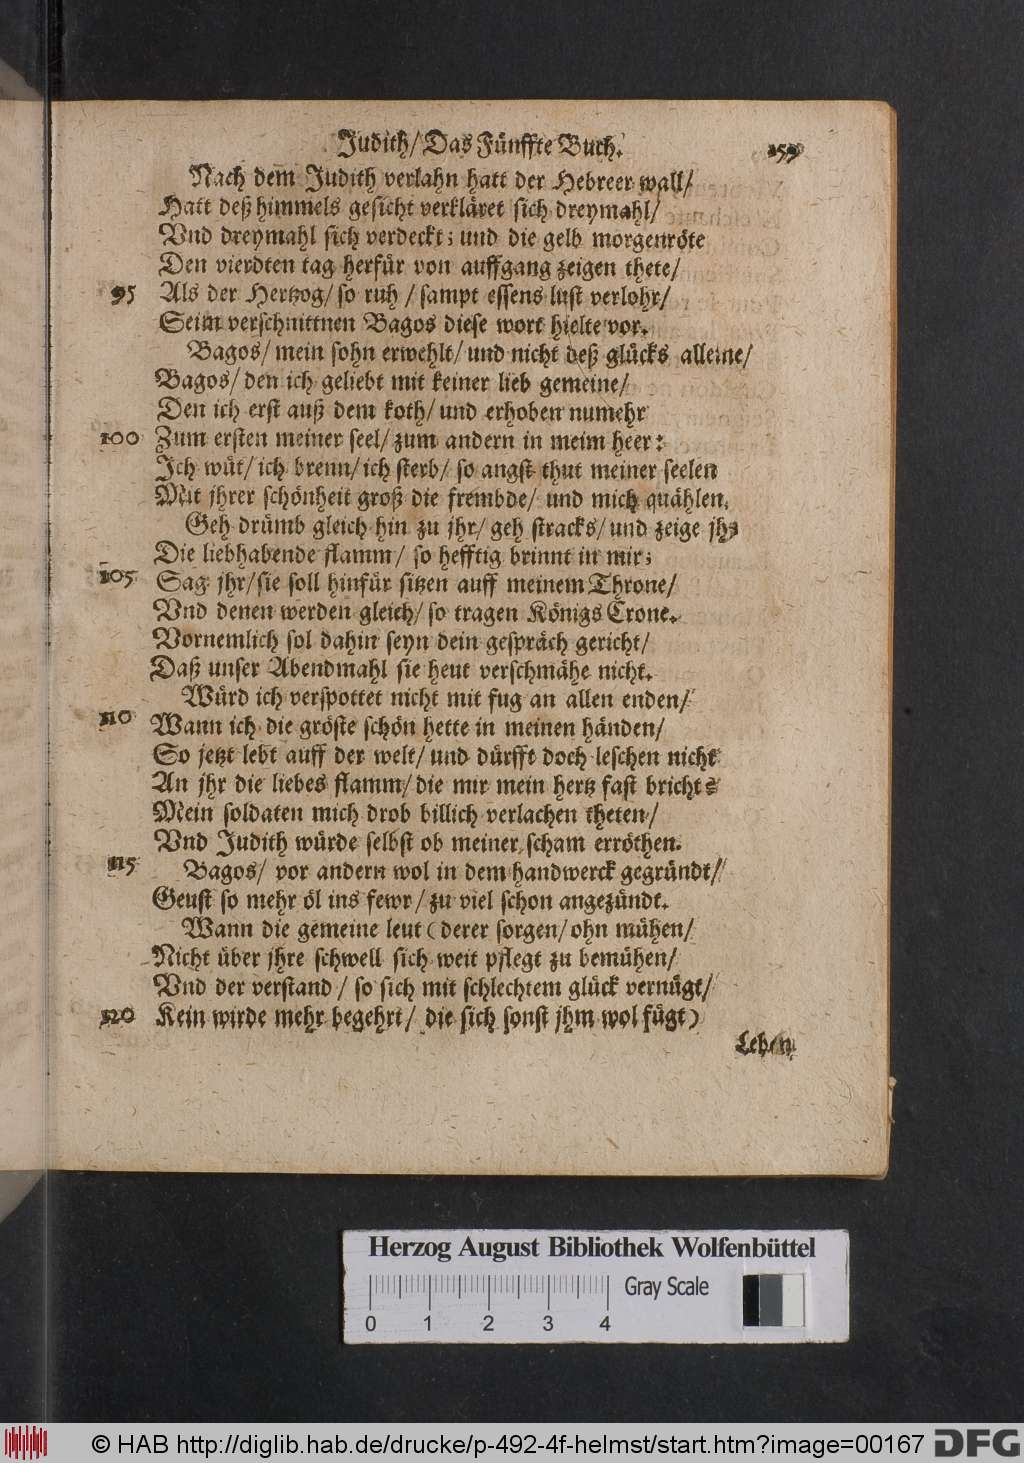 Judith/ Das Fünffte Buch. 159
Nach dem Judith verlahn hatt der Hebreer wall/
Hatt deß himmels gesicht verkläret sich dreymahl/
Vnd dreymahl sich verdeckt; und die gelb morgenröte
Den vierdten tag herfür von auffgang zeigen thete/
95 Als der Hertzog/ so ruh/ sampt essens lust verlohr/
Seim verschnittnen Bagos diese wort hielte vor.
Bagos/ mein sohn erwehlt/ und nicht deß glücks alleine/
Bagos/ den ich geliebt mit keiner lieb gemeine/
Den ich erst auß dem koth/ und erhoben numehr
100 Zum ersten meiner seel/ zum andern in meim heer:
Ich wüt/ ich brenn/ ich sterb/ so angst thut meiner seelen
Mit jhrer schönheit groß die frembde/ und mich quählen.
Geh drümb gleich hin zu jhr/ geh stracks/ und zeige jhr
Die liebhabende flamm/ so hefftig brinnt in mir;
105 Sag jhr/ sie soll hinfür sitzen auff meinem Throne/
Vnd denen werden gleich/ so tragen Königs Crone.
Vornemlich sol dahin seyn dein gespräch gericht/
Daß unser Abendmahl sie heut verschmähe nicht.
Würd ich verspottet nicht mit fug an allen enden/
110 Wann ich die gröste schön hette in meinen händen/
So jetzt lebt auff der welt/ und dürfft doch leschen nicht
An jhr die liebes flamm/ die mir mein hertz fast bricht?
Mein soldaten mich drob billich verlachen theten/
Vnd Judith würde selbst ob meiner scham erröthen.
115 Bagos/ vor andern wol in dem handwerck gegründt/
Geust so mehr öl ins fewr/ zu viel schon angezündt.
Wann die gemeine leut (derer sorgen/ ohn mühen/
Nicht über jhre schwell sich weit pflegt zu bemühen/
Vnd der verstand/ so sich mit schlechtem glück vernügt/
120 Kein wirde mehr begehrt/ die sich sonst jhm wol fügt)
Leben
Herzog August Bibliothek Wolfenbüttel
Gray Scale
0 1 2 3 4
© HAB http://diglib.hab.de/drucke/p-492-4f-helmst/start.htm?image=00167 DFG